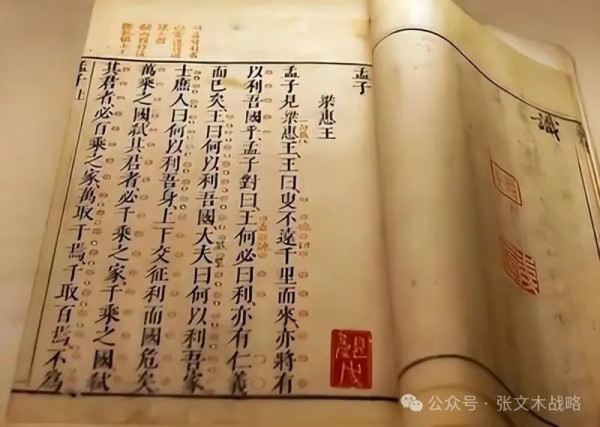 孟子
梁惠王
孟子見梁惠王王曰叟不遠千里而來亦將有
以利吾國乎孟子對曰王何必曰利亦有仁義
而已矣王曰何以利吾國大夫曰何以利吾家
士庶人曰何以利吾身上下交征利而國危矣
萬乘之國弒其君者必千乘之家千乘之國弒
其君者必百乘之家萬取千焉千取百焉不爲
孟子上
公众号 · 张文木战略